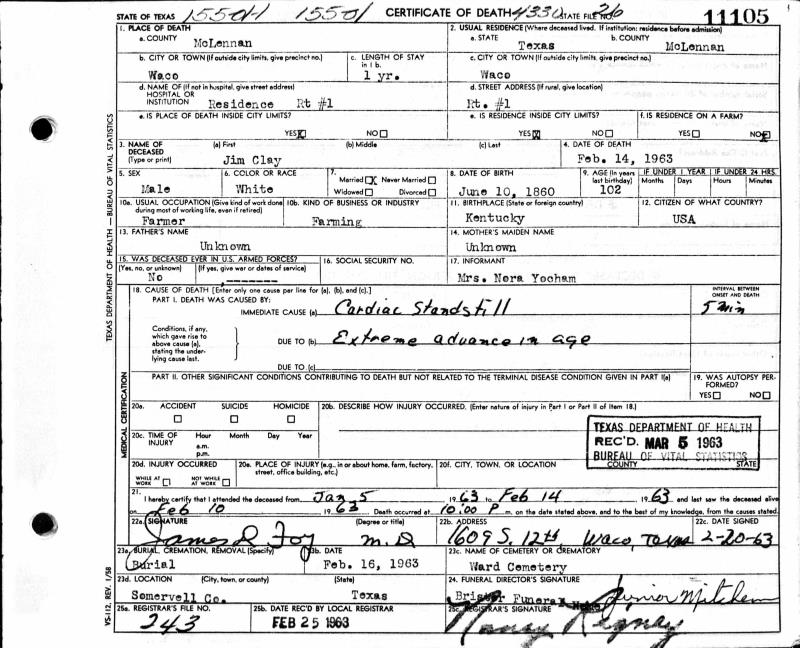 STATE OF TEXAS 15501 CERTIFICATE OF DEATH 4330 STATE FILE NO. 26 11105
1. PLACE OF DEATH
a. COUNTY
McLennan
2. USUAL RESIDENCE (Where deceased lived. If institution: residence before admission)
a. STATE b. COUNTY
Texas McLennan
b. CITY OR TOWN (If outside city limits, give precinct no.)
Waco
c. LENGTH OF STAY in 1 b.
1 yr.
c. CITY OR TOWN (If outside city limits, give precinct no.)
Waco
d. NAME OF (If not in hospital, give street address)
HOSPITAL OR
INSTITUTION Residence Rt #1
d. STREET ADDRESS (If rural, give location)
Rt. #1
e. IS PLACE OF DEATH INSIDE CITY LIMITS?
YES X NO
e. IS RESIDENCE INSIDE CITY LIMITS?
YES X NO
f. IS RESIDENCE ON A FARM?
YES NO X
3. NAME OF DECEASED (Type or print)
(a) First (b) Middle (c) Last
Jim Clay
4. DATE OF DEATH
Feb. 14, 1963
5. SEX
Male
6. COLOR OR RACE
White
7. Married X Never Married
Widowed Divorced
8. DATE OF BIRTH
June 10, 1860
9. AGE (In years last birthday)
102
IF UNDER 1 YEAR IF UNDER 24 HRS.
Months Days Hours Minutes
10a. USUAL OCCUPATION (Give kind of work done during most of working life, even if retired)
Farmer
10b. KIND OF BUSINESS OR INDUSTRY
Farming
11. BIRTHPLACE (State or foreign country)
Kentucky
12. CITIZEN OF WHAT COUNTRY?
USA
13. FATHER'S NAME
Unknown
14. MOTHER'S MAIDEN NAME
Unknown
15. WAS DECEASED EVER IN U.S. ARMED FORCES?
(Yes, no, or unknown) (If yes, give war or dates of service)
No --------
16. SOCIAL SECURITY NO.
17. INFORMANT
Mrs. Nora Yocham
18. CAUSE OF DEATH [Enter only one cause per line for (a), (b), and (c).]
PART I. DEATH WAS CAUSED BY:
INTERVAL BETWEEN ONSET AND DEATH
IMMEDIATE CAUSE (a) Cardiac Standstill 5 Min
Conditions, if any, which gave rise to above cause (a), stating the underlying cause last.
DUE TO (b) Extreme advance in age
DUE TO (c)
PART II. OTHER SIGNIFICANT CONDITIONS CONTRIBUTING TO DEATH BUT NOT RELATED TO THE TERMINAL DISEASE CONDITION GIVEN IN PART I(a)
19. WAS AUTOPSY PERFORMED?
YES NO
20a. ACCIDENT SUICIDE HOMICIDE
20b. DESCRIBE HOW INJURY OCCURRED. (Enter nature of injury in Part I or Part II of Item 18.)
20c. TIME OF INJURY Hour Month Day Year
a.m.
p.m.
TEXAS DEPARTMENT OF HEALTH
REC'D. MAR 5 1963
BUREAU OF VITAL STATISTICS
20d. INJURY OCCURRED
WHILE AT WORK NOT WHILE AT WORK
20e. PLACE OF INJURY (e.g., in or about home, farm, factory, street, office building, etc.)
20f. CITY, TOWN, OR LOCATION COUNTY STATE
21. I hereby certify that I attended the deceased from Jan 5 1963 to Feb 14 1963 and last saw the deceased alive
on Feb 10 1963 Death occurred at 10:00 P m. on the date stated above, and to the best of my knowledge, from the causes stated.
22a. SIGNATURE (Degree or title)
James D. Foy M.D
22b. ADDRESS
1609 S. 12th, Waco, Texas
22c. DATE SIGNED
2-20-63
23a. BURIAL, CREMATION, REMOVAL (Specify)
Burial
23b. DATE
Feb. 16, 1963
23c. NAME OF CEMETERY OR CREMATORY
Ward Cemetery
23d. LOCATION (City, town, or county) (State)
Somervell Co. Texas
24. FUNERAL DIRECTOR'S SIGNATURE
Funeral Home Junior Mitchem
25a. REGISTRAR'S FILE NO.
243
25b. DATE REC'D BY LOCAL REGISTRAR
FEB 25 1963
25c. REGISTRAR'S SIGNATURE
Nancy
TEXAS DEPARTMENT OF HEALTH — BUREAU OF VITAL STATISTICS
MEDICAL CERTIFICATION
VS-112, REV. 1/58